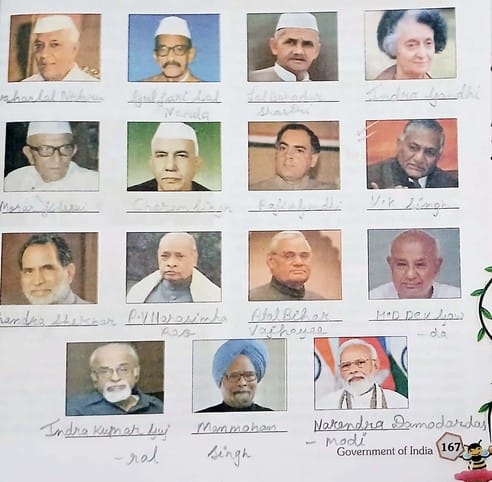 Jawaharlal Nehru
Guljari Lal
Nanda
Lal Bahadur
Shastri
Indira Gandhi
Morar
Charam Singh
Rajiv Gandhi
V.K Singh
Chandra Shekhar
P.V Narasimha
Rao
Atal Bihar
Vajhayee
H.D Dev Gow
- da
Indra Kumar Guj
- ral
Manmohan
Singh
Narendra Damodardas
- Modi
Government of India 167